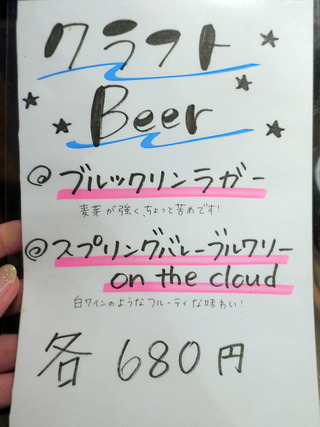 クラフト
Beer
@ブルックリンラガー
麦芽が強く、ちょっと苦めです!
@スプリングバレーブルワリー
on the cloud
白ワインのようなフルーティな味わい!
各680円